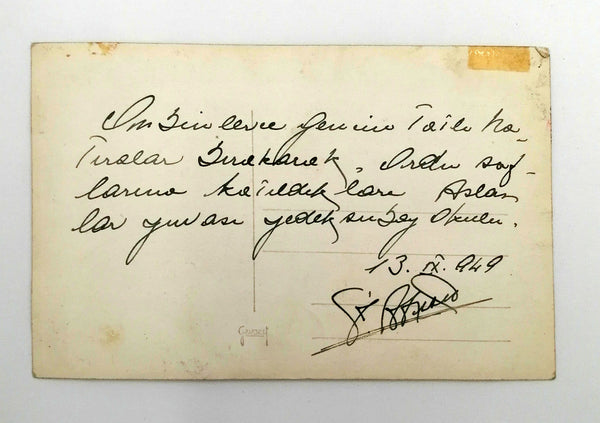 On binlerce gencin Tatlı ha-
tıralar bırakarak, Ordu saf-
larına katıldıkları Aslan
lar yuvası yedek subay Okulu.
13.IX.949